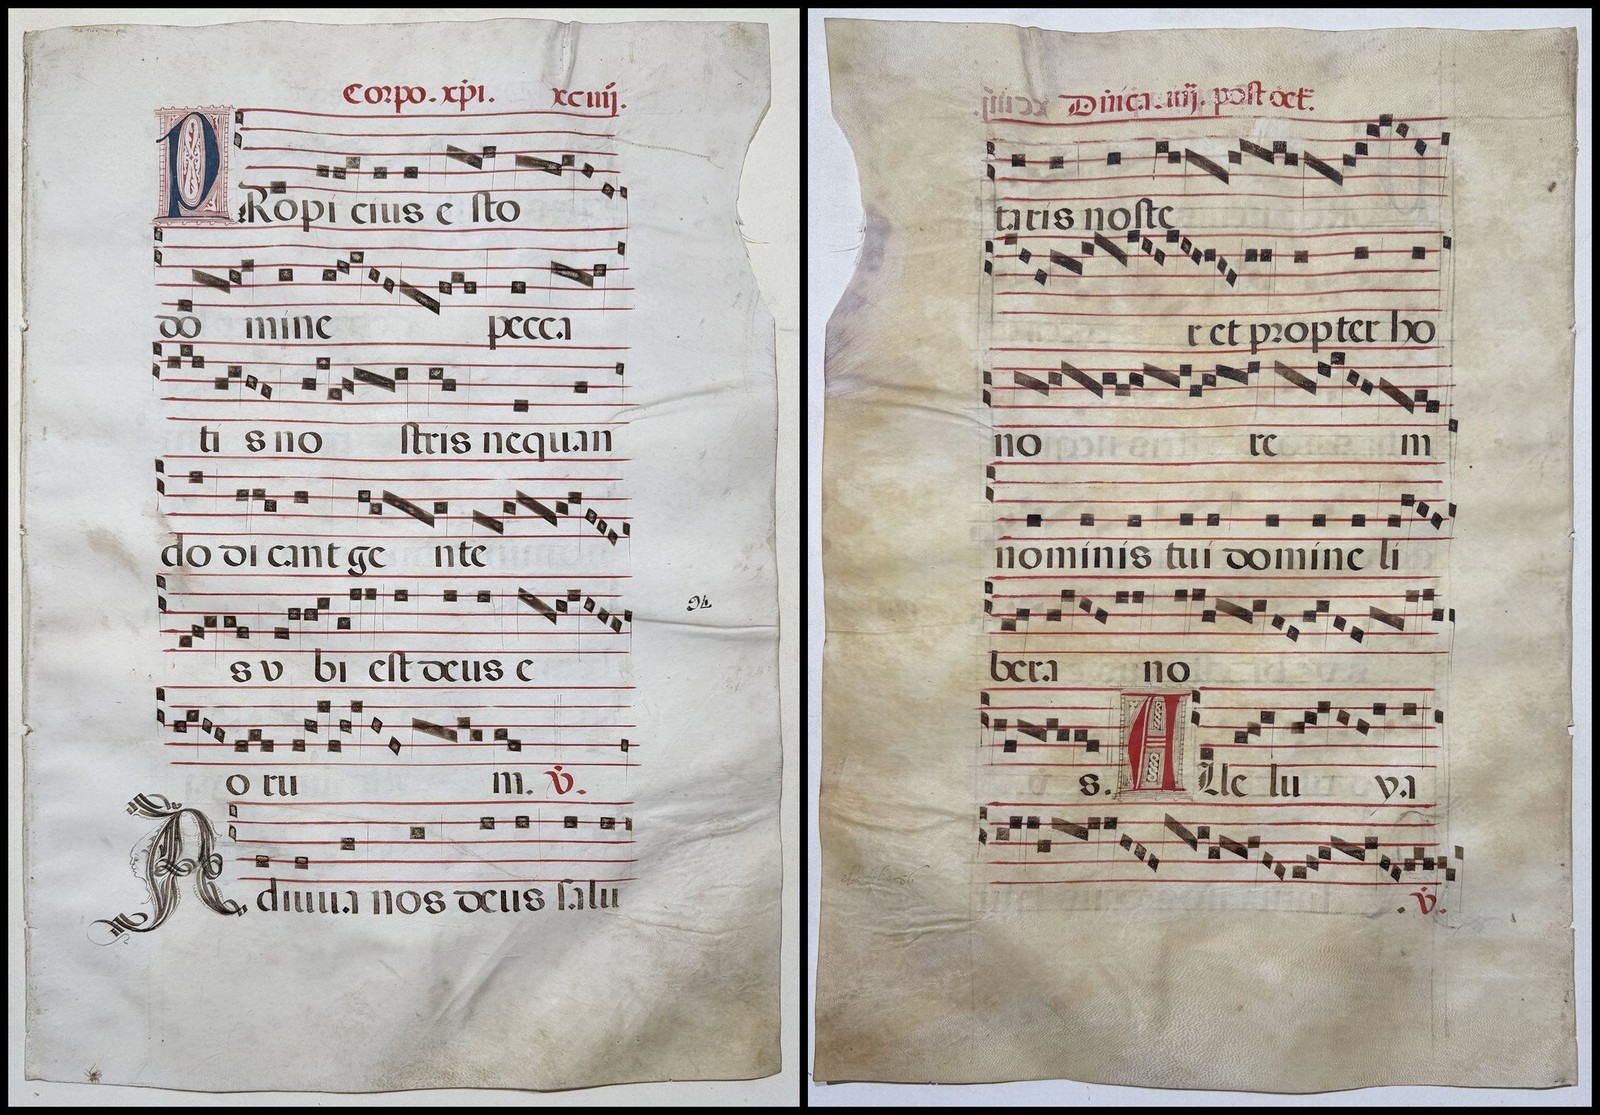 Corpo. xp̄i. xciiij.
PRopi cius e sto
do mine pecca
ti s no stris nequan
do di cant ge nte
s v bi est deus e
o ru m. v̇.
Adiuua nos deus salu
94
Dn̄ica. iiij. post oct̄.
taris noste
r et propter ho
no re m
nominis tui domine li
bera no
s. ALle lu ya
. v̇.